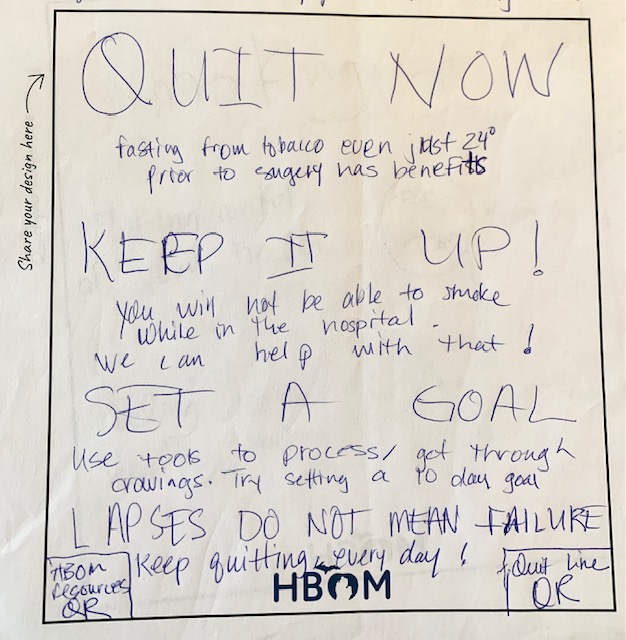 Share your design here
QUIT NOW
fasting from tobacco even just 24°
prior to surgery has benefits
KEEP IT UP!
You will not be able to smoke
while in the hospital.
We can help with that!
SET A GOAL
Use tools to process/get through
cravings. Try setting a 10 day goal
LAPSES DO NOT MEAN FAILURE
Keep quitting, every day!
HBOM
resources
QR
HBOM
Quit line
QR